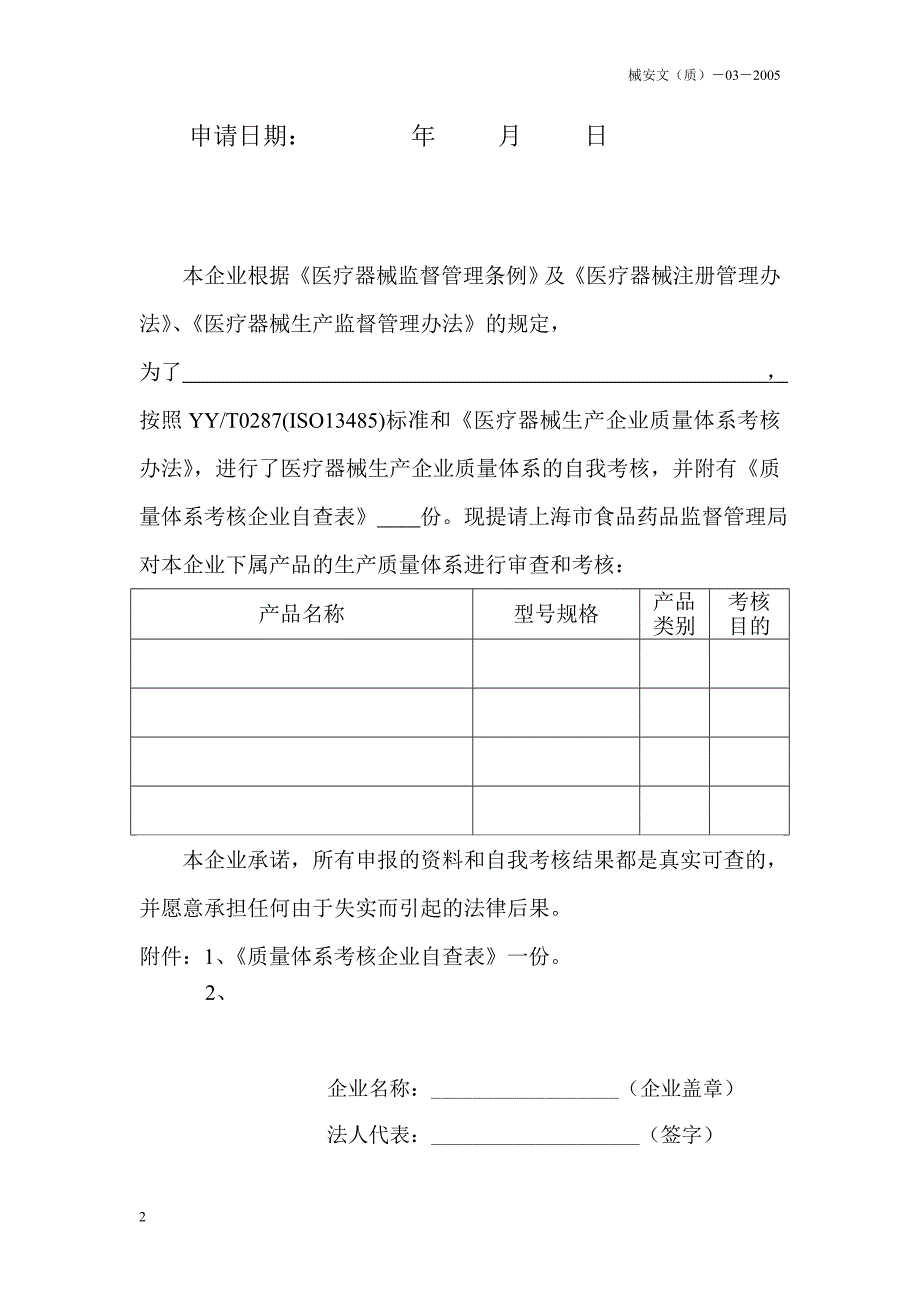 械安文（质）－03－2005
申请日期： 年 月 日
本企业根据《医疗器械监督管理条例》及《医疗器械注册管理办
法》、《医疗器械生产监督管理办法》的规定，
为了 ，
按照 YY/T0287(ISO13485)标准和《医疗器械生产企业质量体系考核
办法》，进行了医疗器械生产企业质量体系的自我考核，并附有《质
量体系考核企业自查表》____份。现提请上海市食品药品监督管理局
对本企业下属产品的生产质量体系进行审查和考核：
产品名称 型号规格 产品类别 考核目的
本企业承诺，所有申报的资料和自我考核结果都是真实可查的，
并愿意承担任何由于失实而引起的法律后果。
附件：1、《质量体系考核企业自查表》一份。
2、
企业名称：__________________（企业盖章）
法人代表：____________________（签字）
2